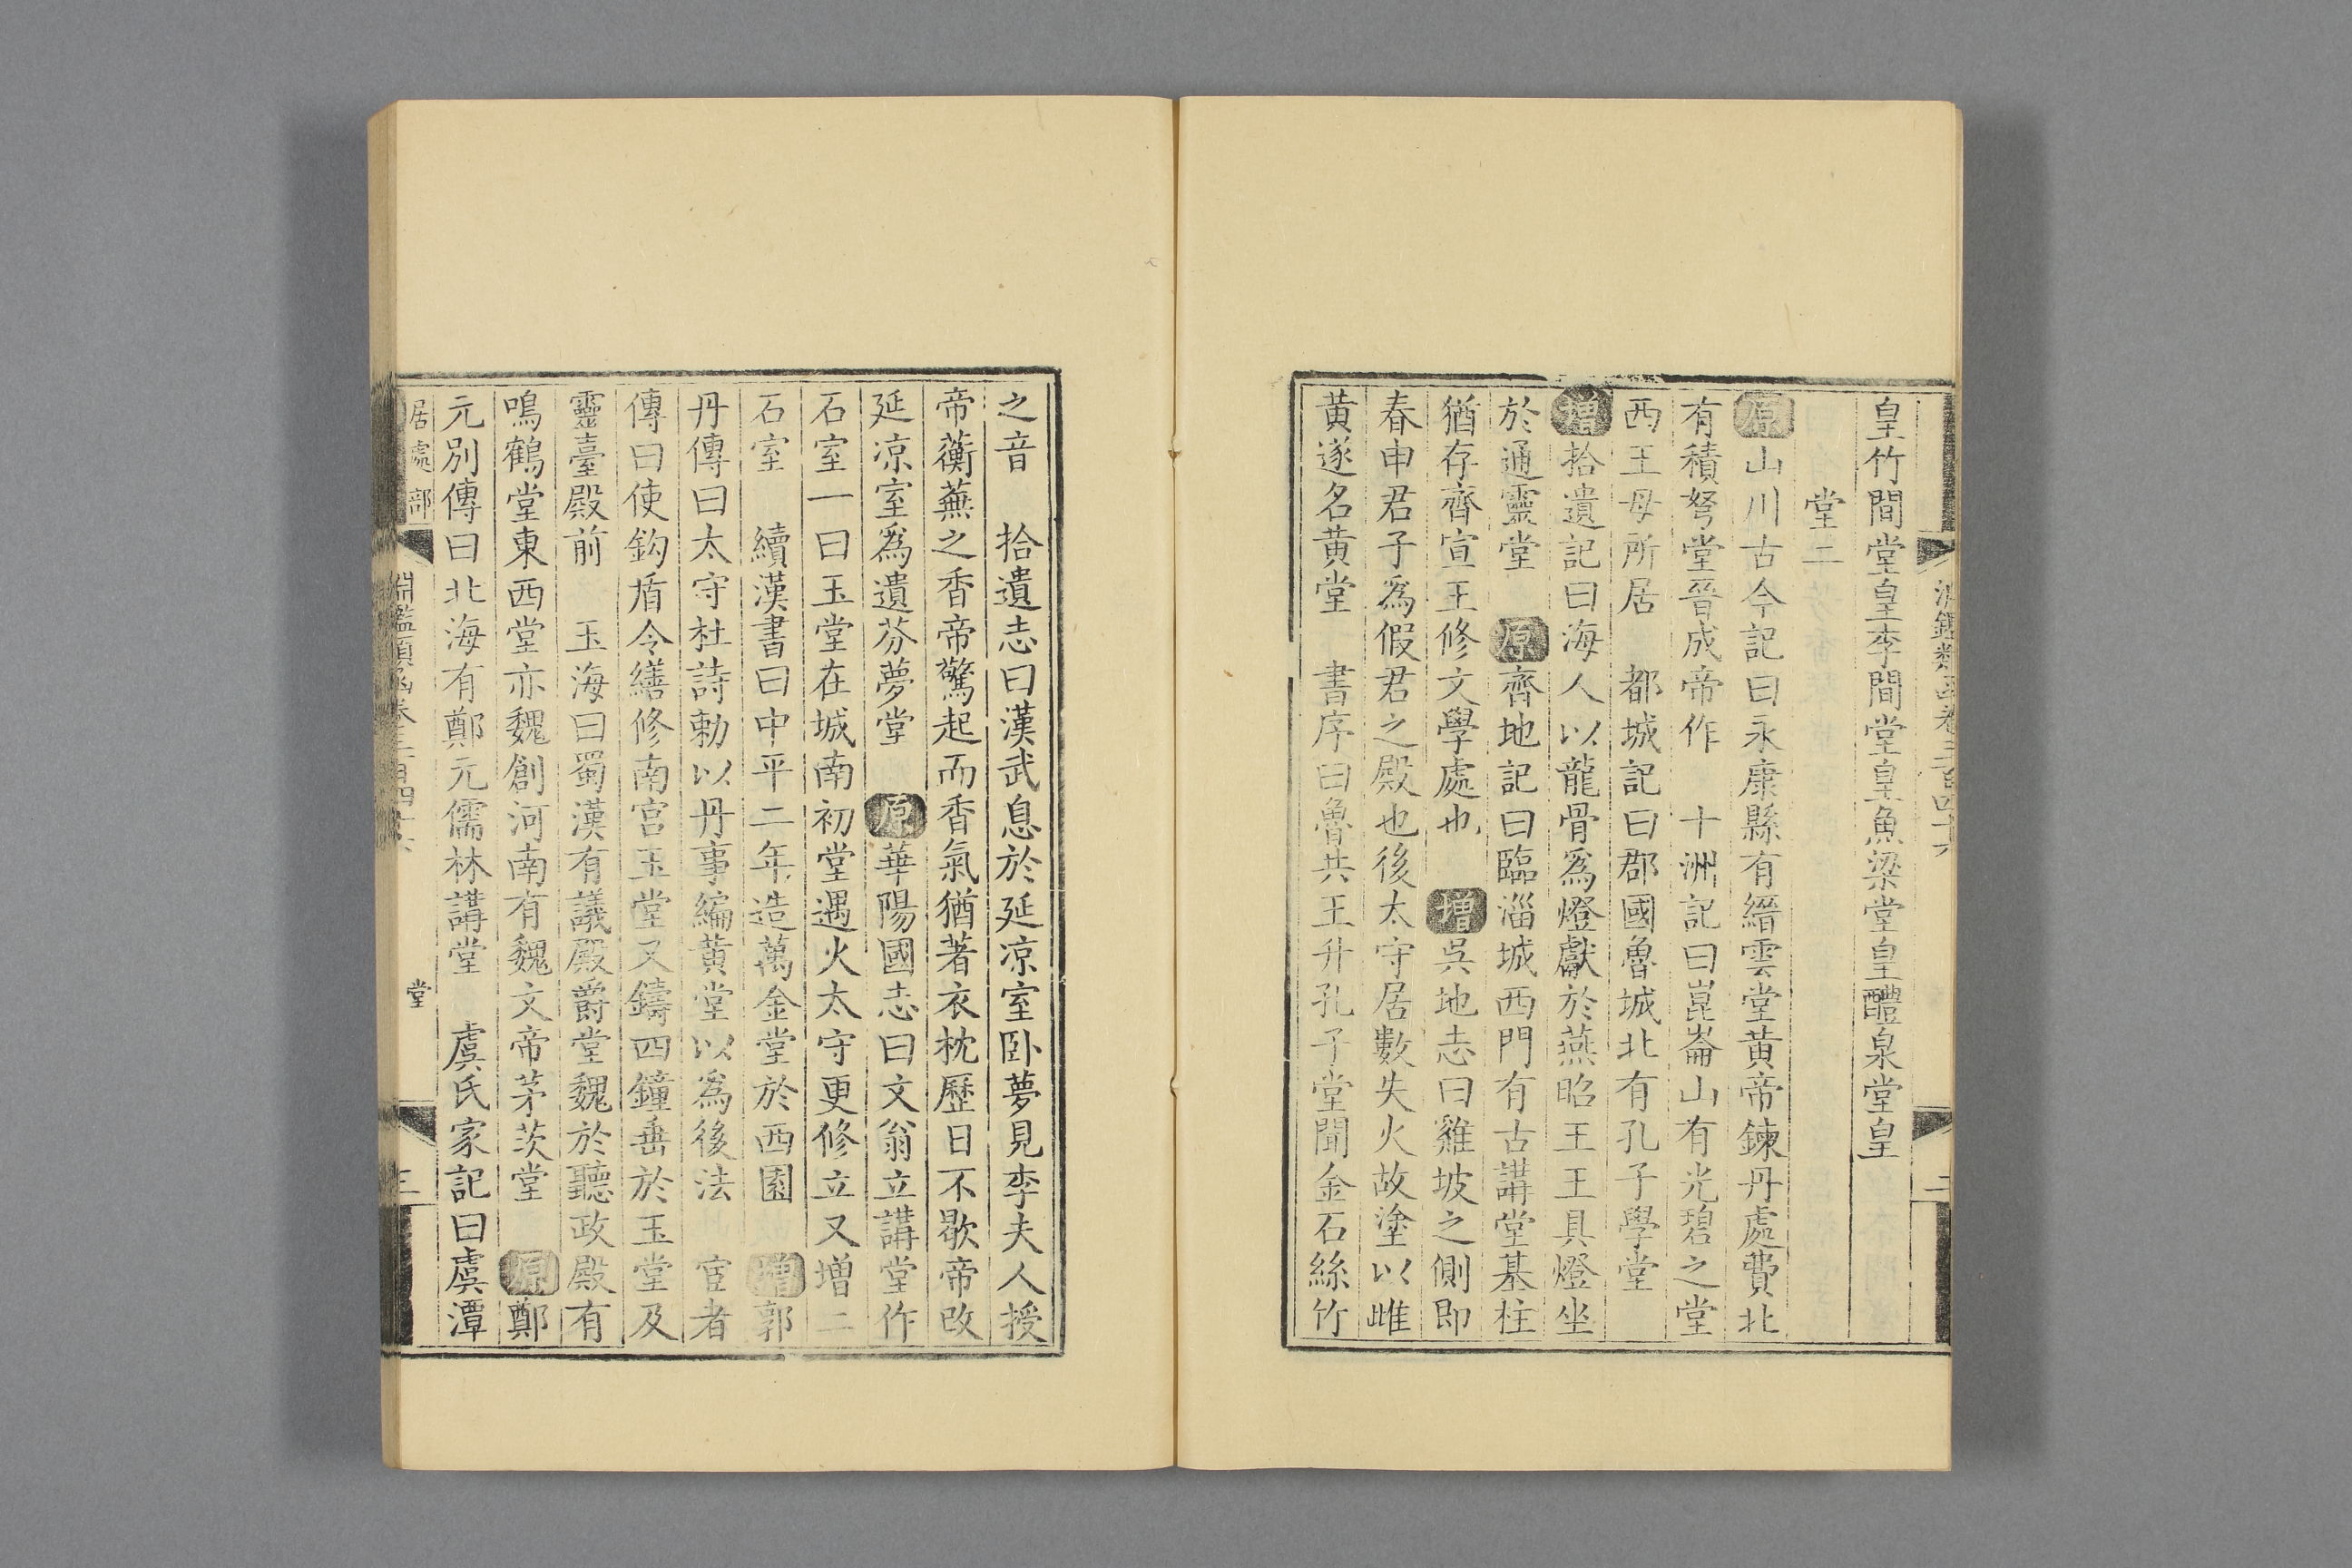 皇竹間堂皇李間堂皇魚梁堂皇醴泉堂皇
堂二
原山川古今記曰永康縣有縉雲堂黄帝鍊丹處費北
有積弩堂晉成帝作 十洲記曰崑崙山有光碧之堂
西王母所居 都城記曰郡國魯城北有孔子學堂
增拾遺記曰海人以龍骨爲燈獻於燕昭王王具燈坐
於通靈堂 原齊地記曰臨淄城西門有古講堂基柱
猶存齊宣王修文學處也 增吳地志曰雞坡之側即
春申君子爲假君之殿也後太守居數失火故塗以雌
黄遂名黄堂 書序曰魯共王升孔子堂聞金石絲竹
之音 拾遺志曰漢武息於延凉室卧夢見李夫人授
帝蘅蕪之香帝驚起而香氣猶著衣枕歷日不歇帝改
延凉室爲遺芬夢堂 原華陽國志曰文翁立講堂作
石室一曰玉堂在城南初堂遇火太守更修立又增二
石室 續漢書曰中平二年造萬金堂於西園 增郭
丹傳曰太守杜詩勅以丹事編黄堂以爲後法 宦者
傳曰使鈎盾令繕修南宫玉堂又鑄四鐘垂於玉堂及
靈臺殿前 玉海曰蜀漢有議殿爵堂魏於聽政殿有
鳴鶴堂東西堂亦魏創河南有魏文帝茅茨堂 原鄭
元別傳曰北海有鄭元儒林講堂 虞氏家記曰虞潭
居處部
淵鑑類函卷三百四十六
堂
三